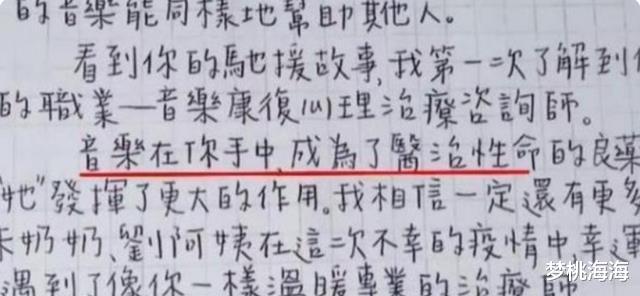 的音樂能同樣地幫助其他人。
看到你的馳援故事,我第一次了解到
的職業—音樂康復心理治療咨詢師。
音樂在你手中,成為了醫治性命的良藥
"她"發揮了更大的作用。我相信一定還有更多
朱奶奶、劉阿姨在這次不幸的疫情中幸運
遇到了像你一樣溫暖專業的治療師
梦桃海海